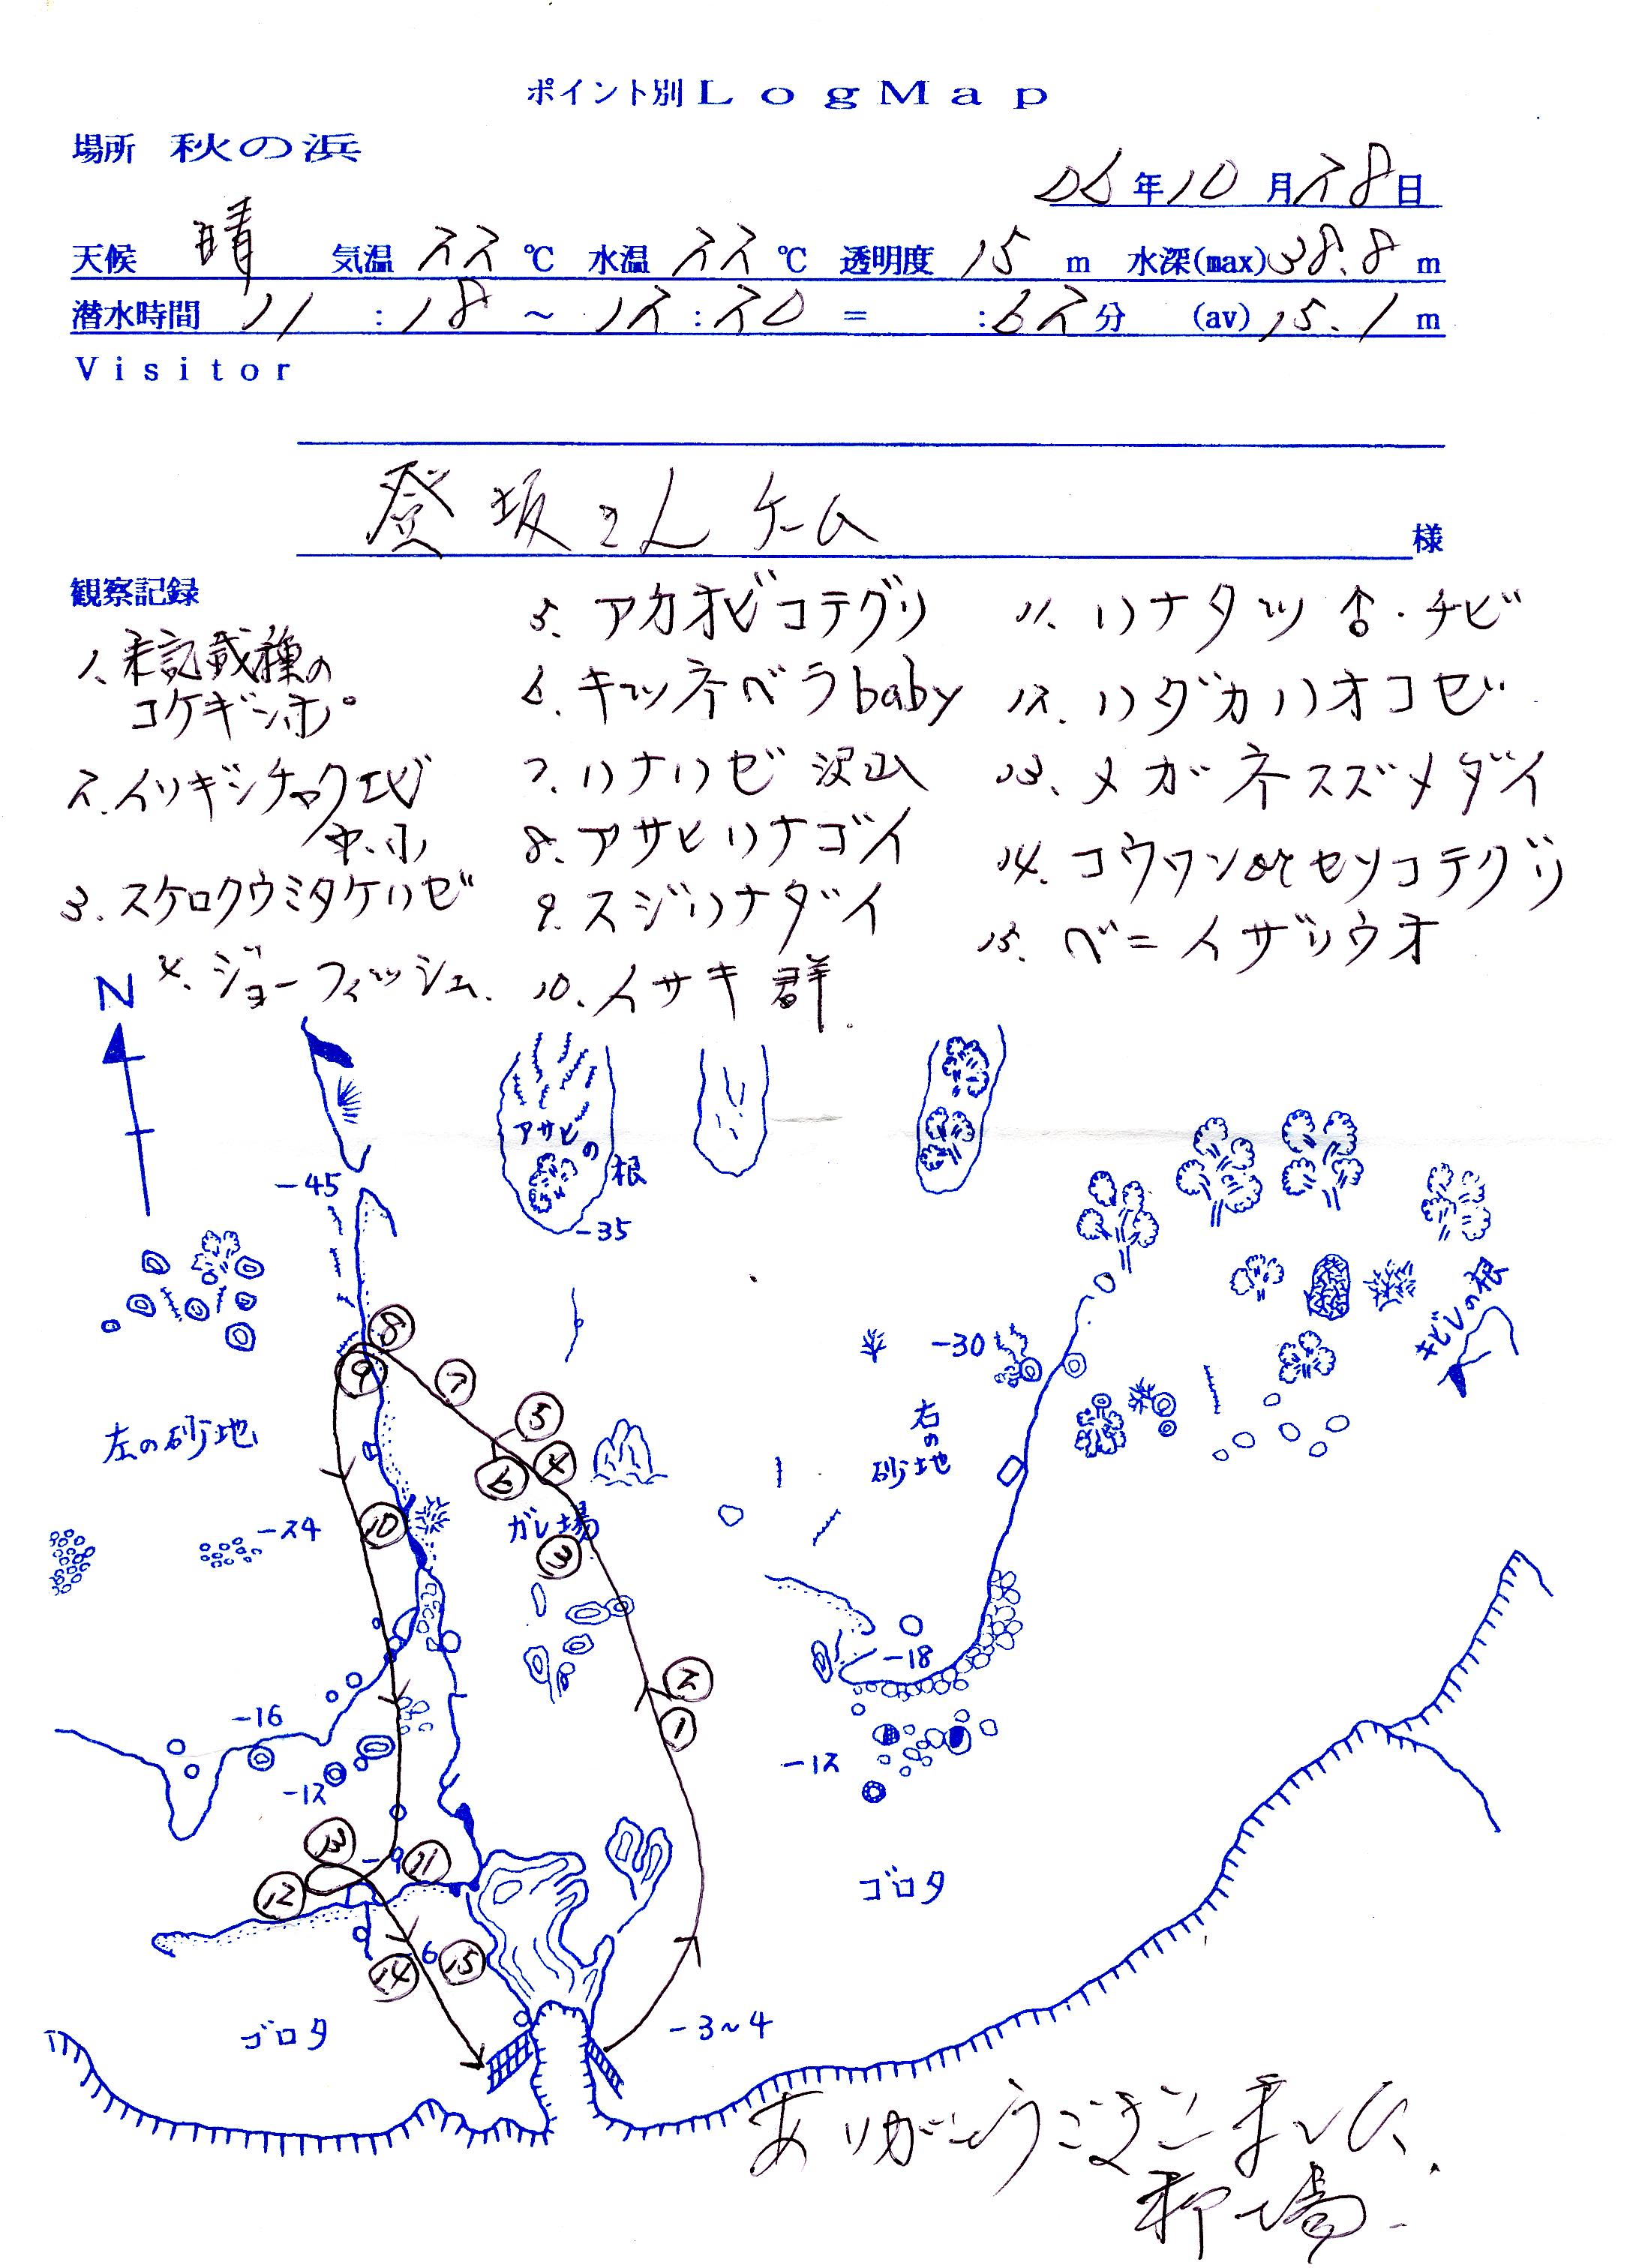 ポイント別 LogMap
場所 秋の浜
06年10月28日
天候 晴 気温 22 ℃ 水温 22 ℃ 透明度 15 m 水深(max) 38.8 m
潜水時間 11:18 ~ 12:20 = :62分 (av) 15.1 m
Visitor
登坂さんチーム 様
観察記録
1. 未記載種の
コケギンポ
2. イソギンチャクエビ
中、小
3. スケロクウミタケハゼ
4. ジョーフィッシュ
5. アカオビコテグリ
6. キツネベラbaby
7. ハナハゼ 沢山
8. アサヒハナゴイ
9. スジハナダイ
10. イサキ 群
11. ハナタツ ♂・チビ
12. ハダカハオコゼ
13. メガネスズメダイ
14. コウワンorセソコテグリ
15. ベニイザリウオ
N
アサヒの根
-45
-35
⑧
-30
キビレの根
⑨
⑦
⑤
左の砂地
右の砂地
⑥ ④
⑩
-24
ガレ場
③
-18
②
-16
①
-12
-12
⑬
-9 ⑪
⑫
ゴロタ
6
⑭ ⑮
ゴロタ
-3~4
ありがとうございました。
柳場